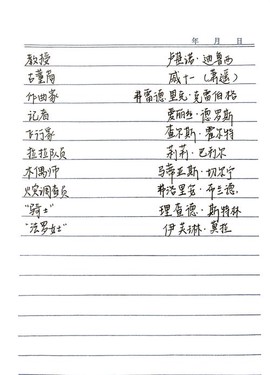 年 月 日
教授 卢基诺·迪鲁西
古董商 戚十一（萧遥）
作曲家 弗雷德里克·克雷伯格
记者 爱丽丝·德罗斯
飞行家 查尔斯·霍尔特
拉拉队员 莉莉·巴利尔
木偶师 马蒂亚斯·切尔宁
火灾调查员 弗洛里安·布兰德
“骑士” 理查德·斯特林
“法罗女士” 伊芙琳·莫拉